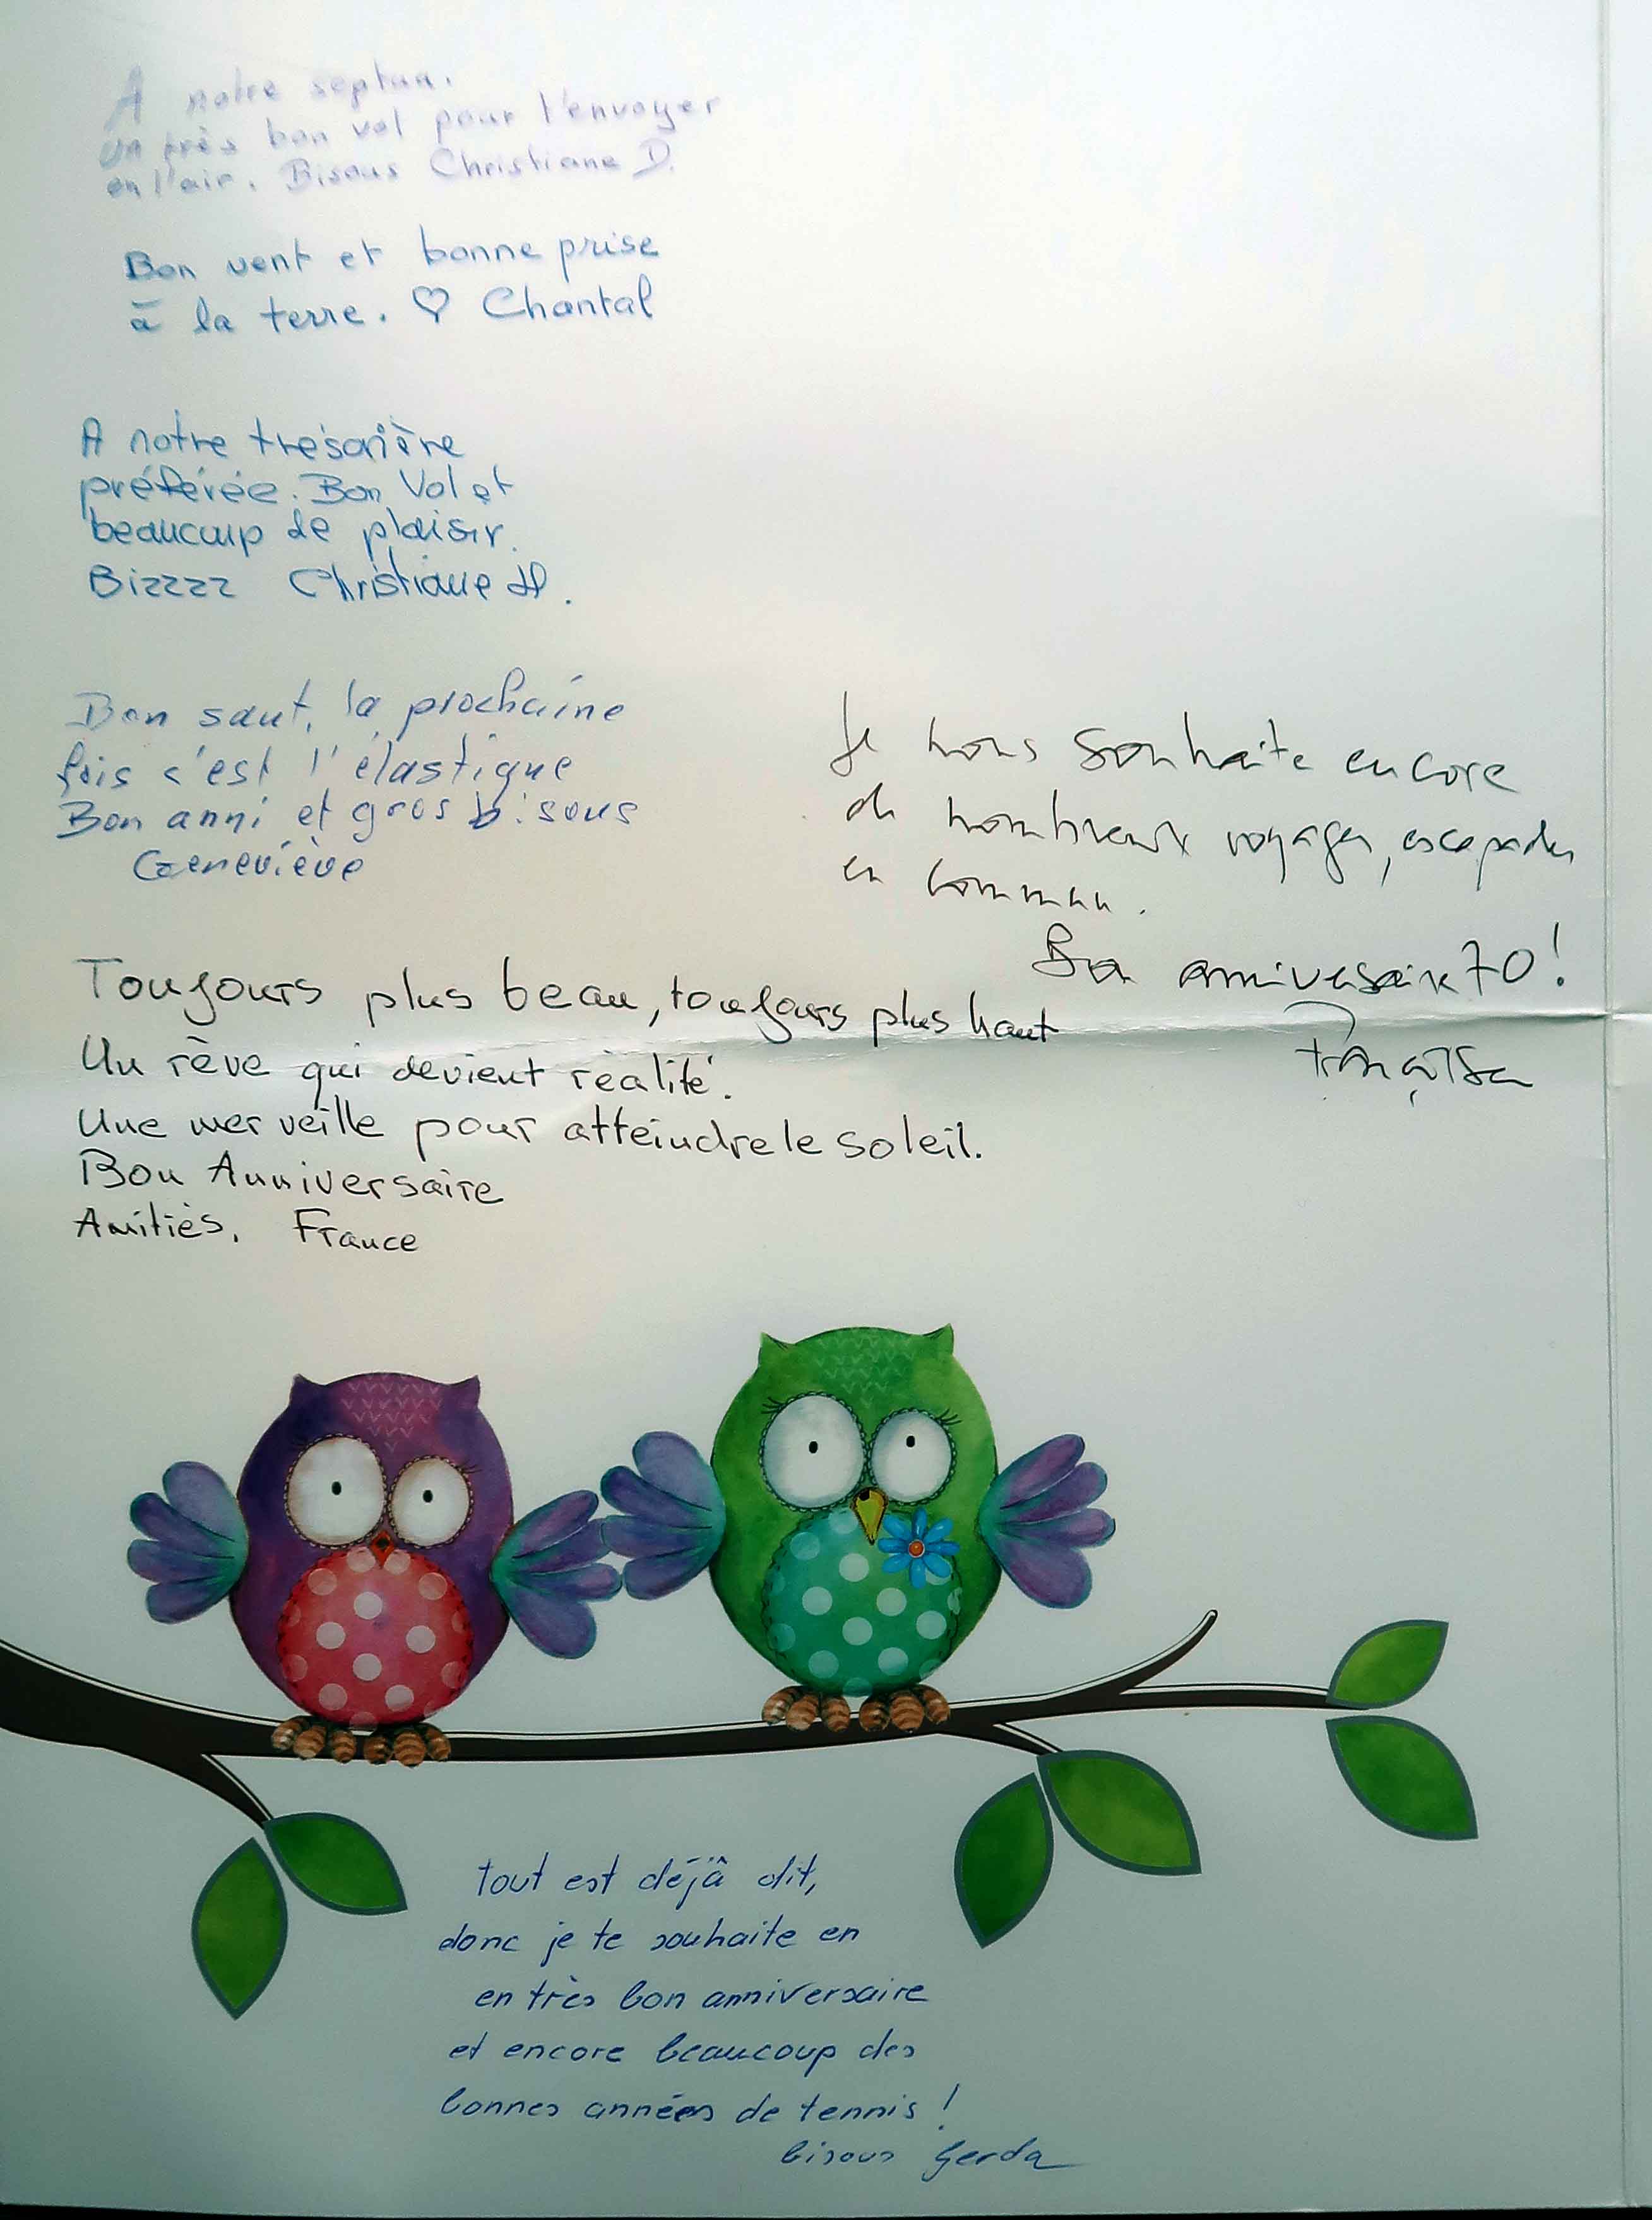 A notre septua.
un très bon vol pour t'envoyer
en l'air. Bisous Christiane D.
Bon vent et bonne prise
à la terre. ♡ Chantal
A notre trésorière
préférée. Bon Vol et
beaucoup de plaisir.
Bizzzz Christiane H.
Bon saut, la prochaine
fois c'est l'élastique
Bon anni et gros bisous
Geneviève
Je nous souhaite encore
de nombreux voyages, escapades
en commun.
Bon anniversaire 70!
Françoise
Toujours plus beau, toujours plus haut
Un rêve qui devient réalité.
Une merveille pour atteindre le soleil.
Bon Anniversaire
Amitiés, France
tout est déjà dit,
donc je te souhaite en
en très bon anniversaire
et encore beaucoup des
bonnes années de tennis !
bisous Gerda